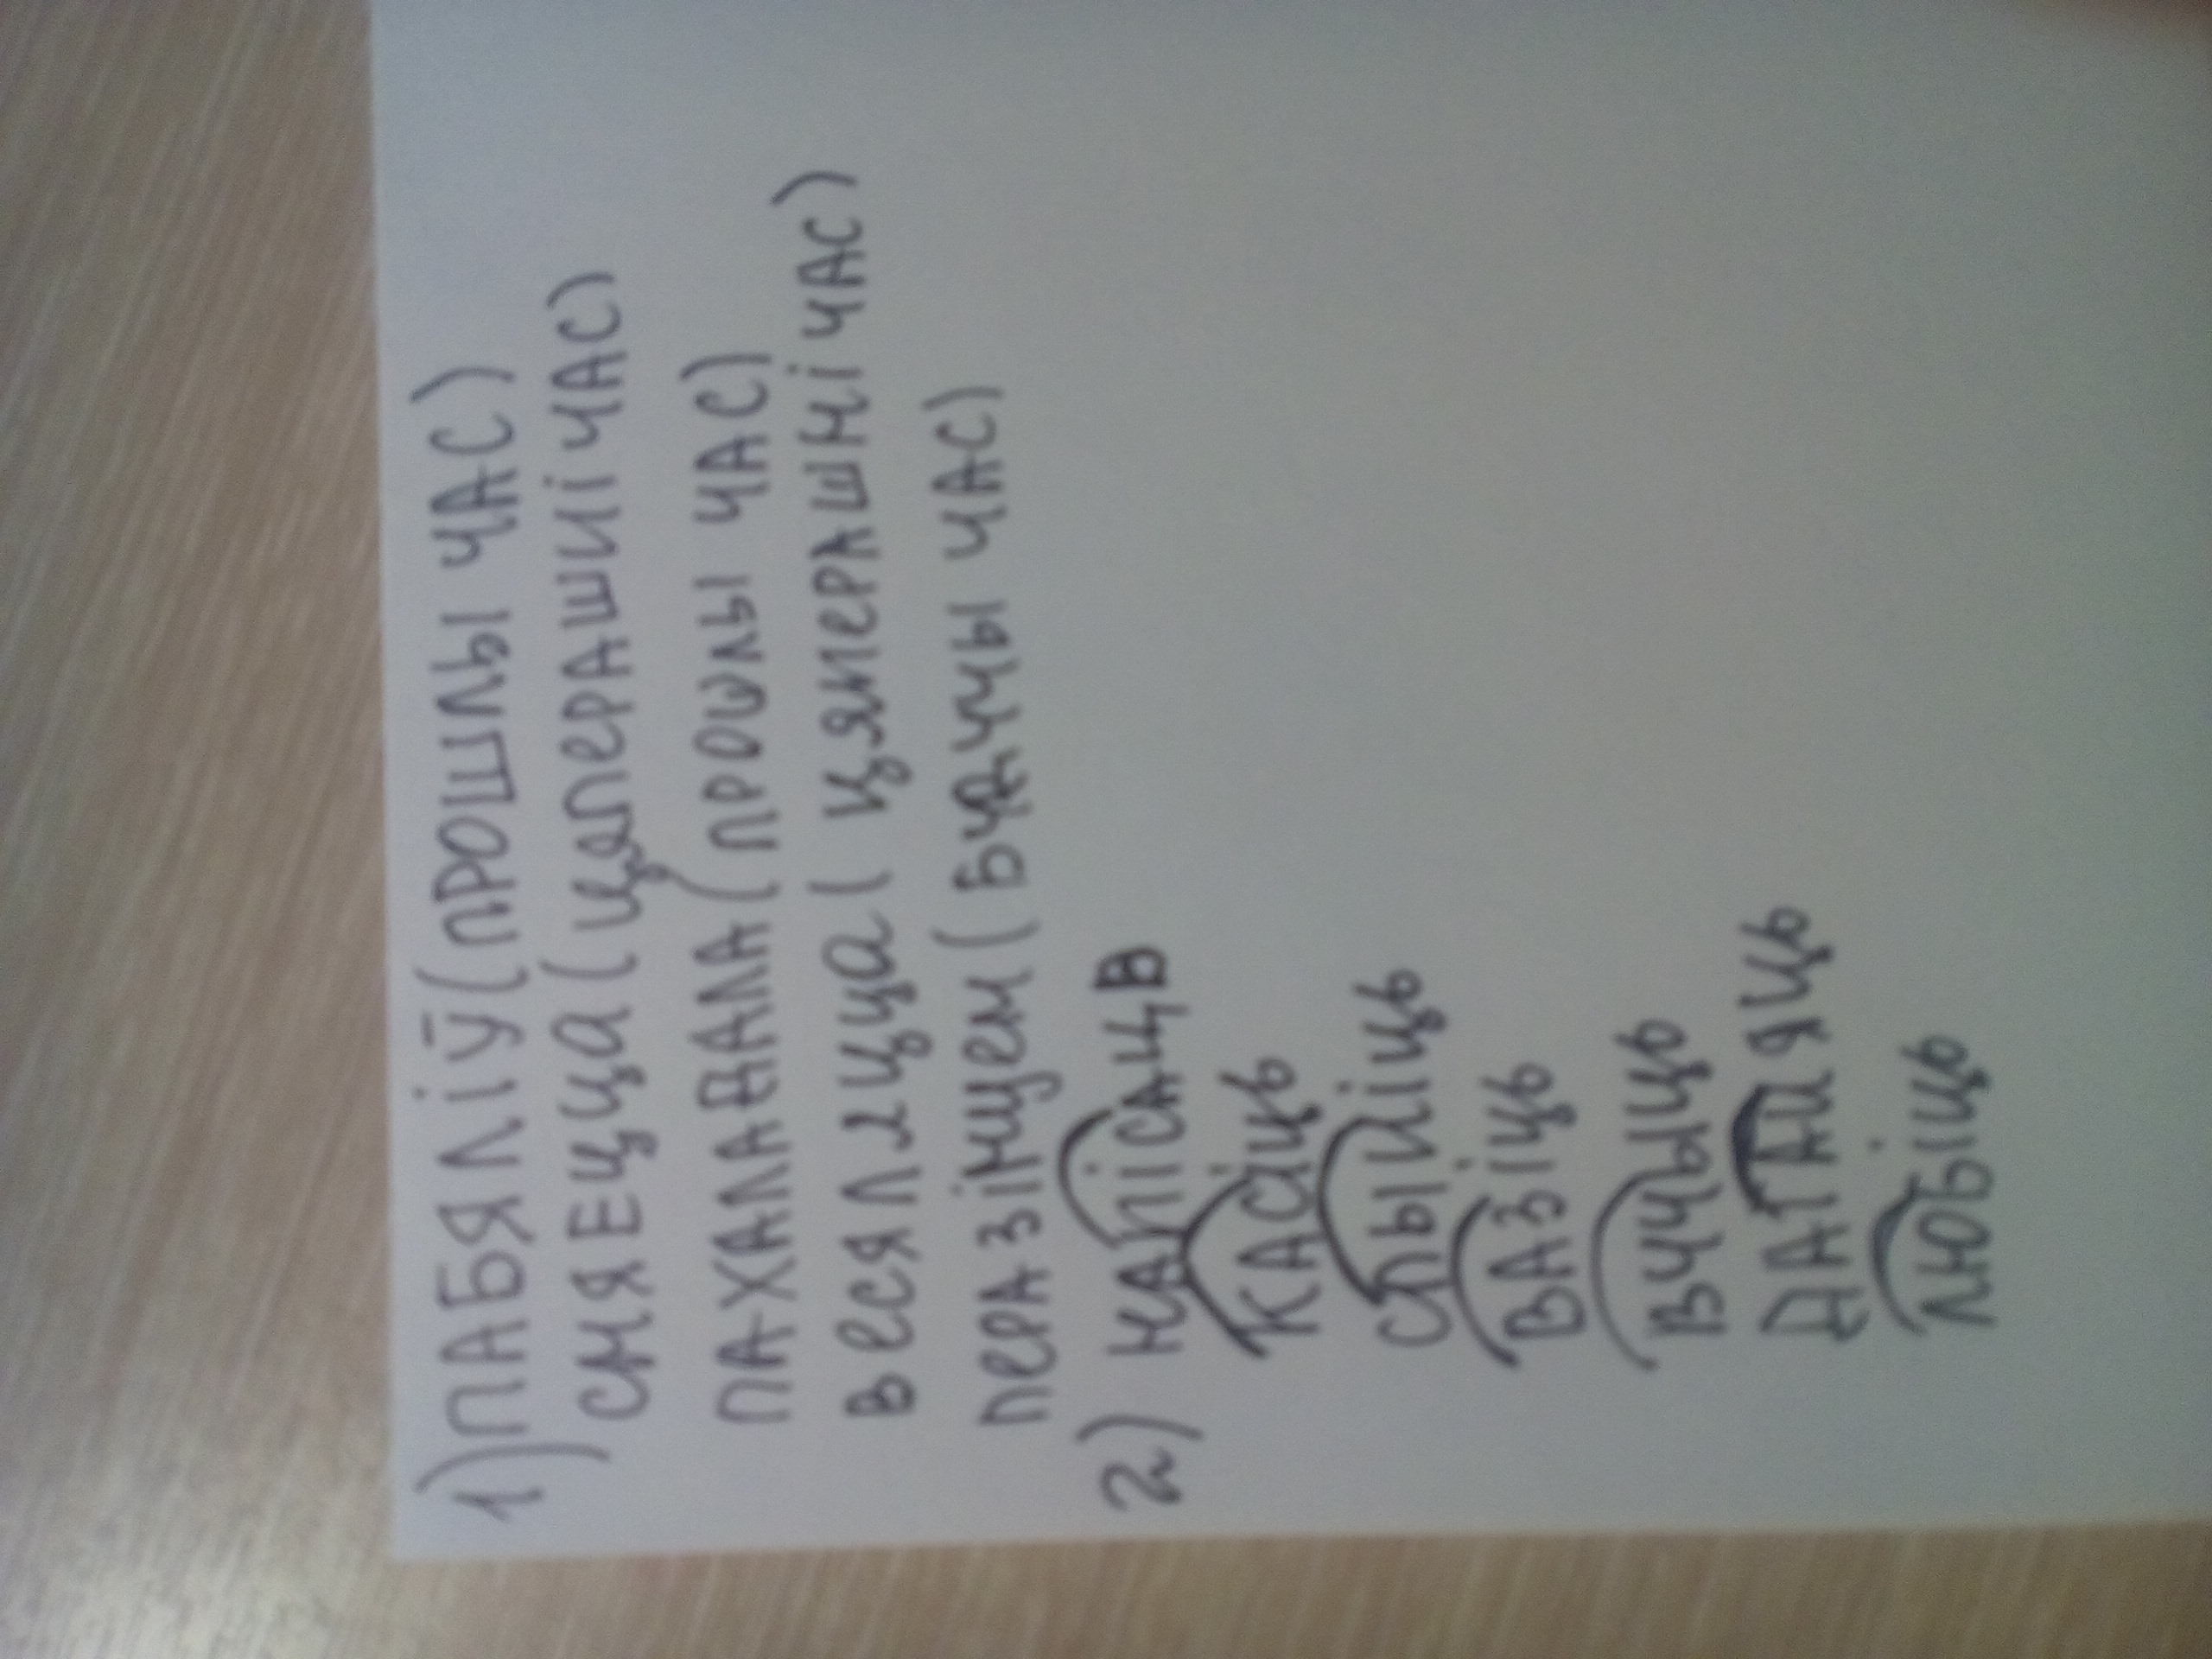 1) ПАБЯЛІЎ (ПРОШЛЫ ЧАС)
СМЯЕЦЦА (ЦЯПЕРАШНІ ЧАС)
ПА-ХАЛАДАЛА (ПРОШЛЫ ЧАС)
ВЕСЯЛЯЦЦА (ЦЯПЕРАШНІ ЧАС)
ПЕРАЗІМУЕМ (БУДУЧЫ ЧАС)
2) НАПІСАЦЬ
КАСІЦЬ
СПЫНІЦЬ
ВАЗІЦЬ
ВУЧЫЦЬ
ДАГАНЯЦЬ
ЛЮБІЦЬ